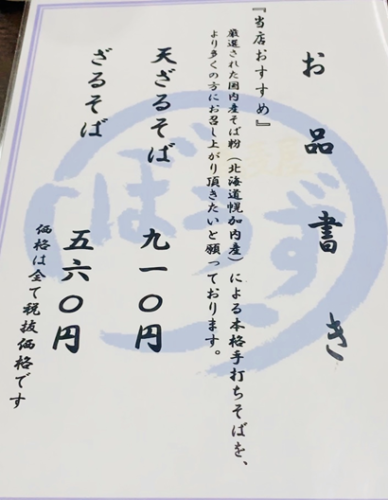 お品書き
『当店おすすめ』
厳選された国内産そば粉（北海道幌加内産）による本格手打ちそばを、
より多くの方にお召し上がり頂きたいと願っております。
天ざるそば 九一〇円
ざるそば 五六〇円
価格は全て税抜価格です